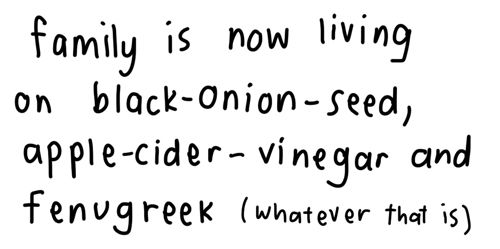 family is now living
on black-onion-seed,
apple-cider-vinegar and
fenugreek (whatever that is)